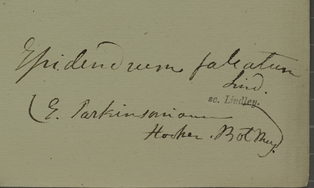 Epidendrum falcatum
Lind.
sc. Lindley.
(E. Parkinsonianum
Hooker. Bot Mag)